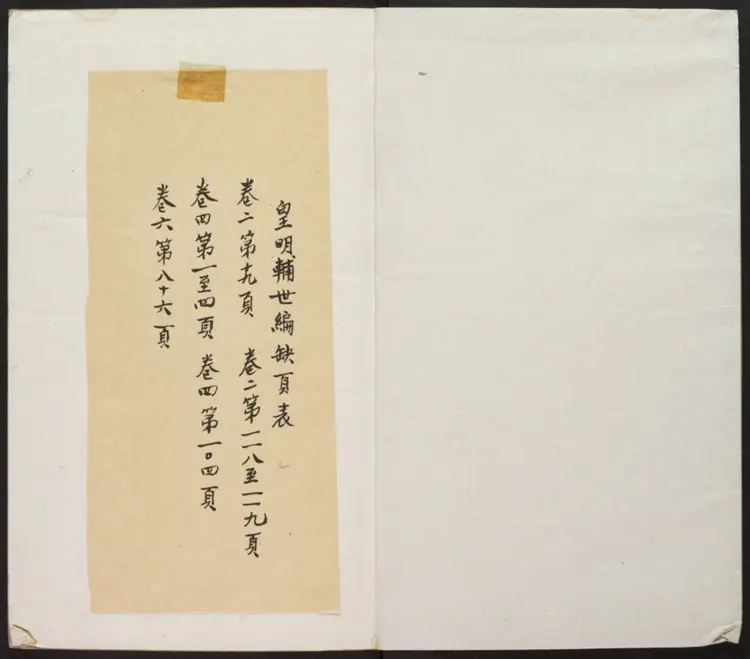 皇明輔世編缺頁表
卷二第十九頁　卷二第一一八至一一九頁
卷四第一至四頁　卷四第一〇四頁
卷六第八十六頁